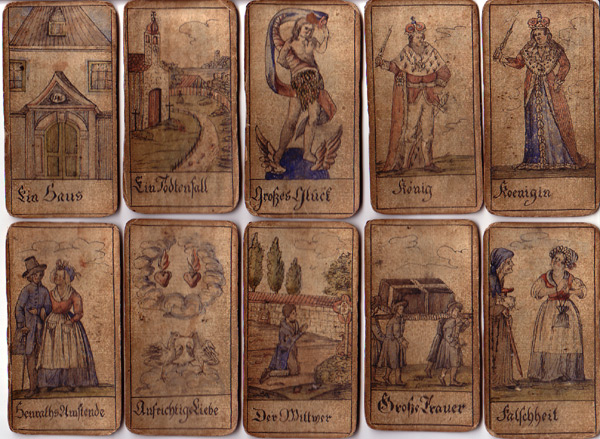 Ein Haus
Ein Todtenfall
Großes Glück
König
Koenigin
Heuraths Umstende
Aufrichtige Liebe
Der Wittwer
Große Trauer
Falschheit